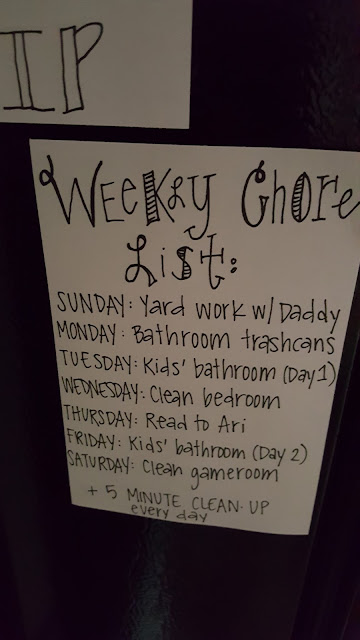 IP
Weekly Chore
List:
SUNDAY: Yard work w/ Daddy
MONDAY: Bathroom trashcans
TUESDAY: Kids' bathroom (Day 1)
WEDNESDAY: Clean bedroom
THURSDAY: Read to Ari
FRIDAY: Kids' bathroom (Day 2)
SATURDAY: Clean gameroom
+ 5 MINUTE CLEAN-UP
every day